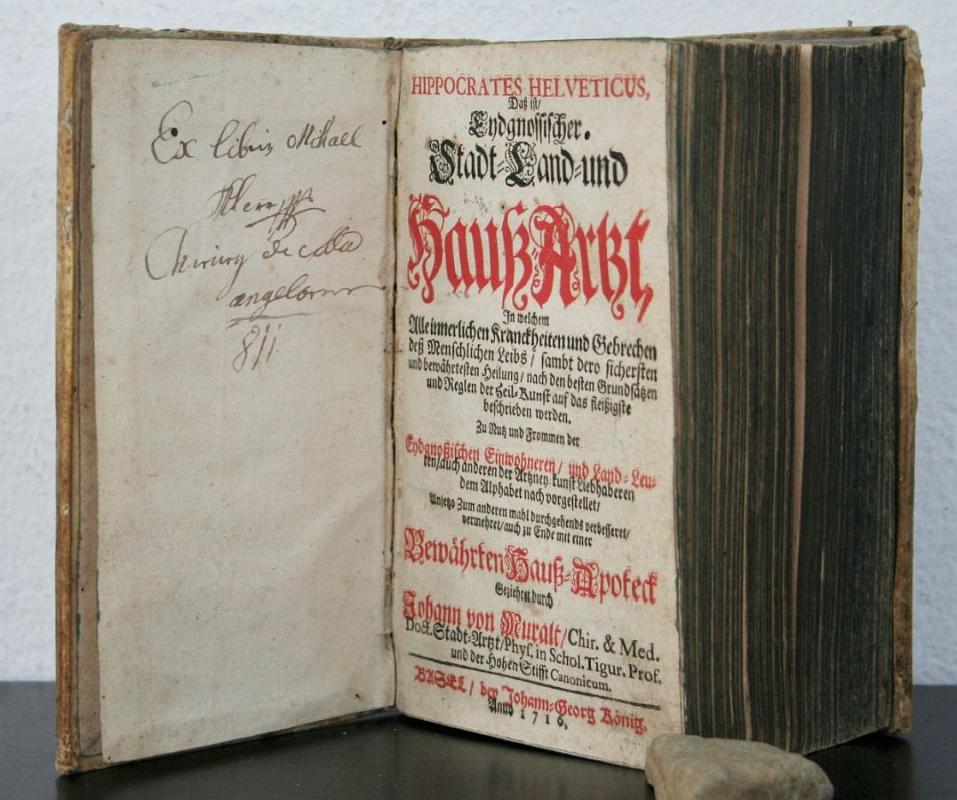 Ex libris Michael
Chirurg de
811
HIPPOCRATES HELVETICUS,
Daß ist/
Eydgnossischer
Stadt-Land-und
Hauß-Artzt,
In welchem
Alle innerlichen Kranckheiten und Gebrechen
deß Menschlichen Leibs / sambt dero sichersten
und bewährtesten Heilung / nach den besten Grundsätzen
und Reglen der Heil-Kunst auf das fleißigste
beschrieben werden.
Zu Nutz und Frommen der
Eydgnoßischen Einwohneren / und Land-Leu-
ten/auch anderen der Artzney-kunst Liebhaberen
dem Alphabet nach vorgestellet/
Anjetzo Zum anderen mahl durchgehends verbesseret/
vermehret/auch zu Ende mit einer
Bewährten Hauß-Apoteck
Geziehret durch
Johann von Muralt/Chir. & Med.
Doct. Stadt-Artzt/Phys. in Schol. Tigur. Prof.
und der Hohen Stifft Canonicum.
BASEL / bey Johann-Georg König,
Anno 1716.